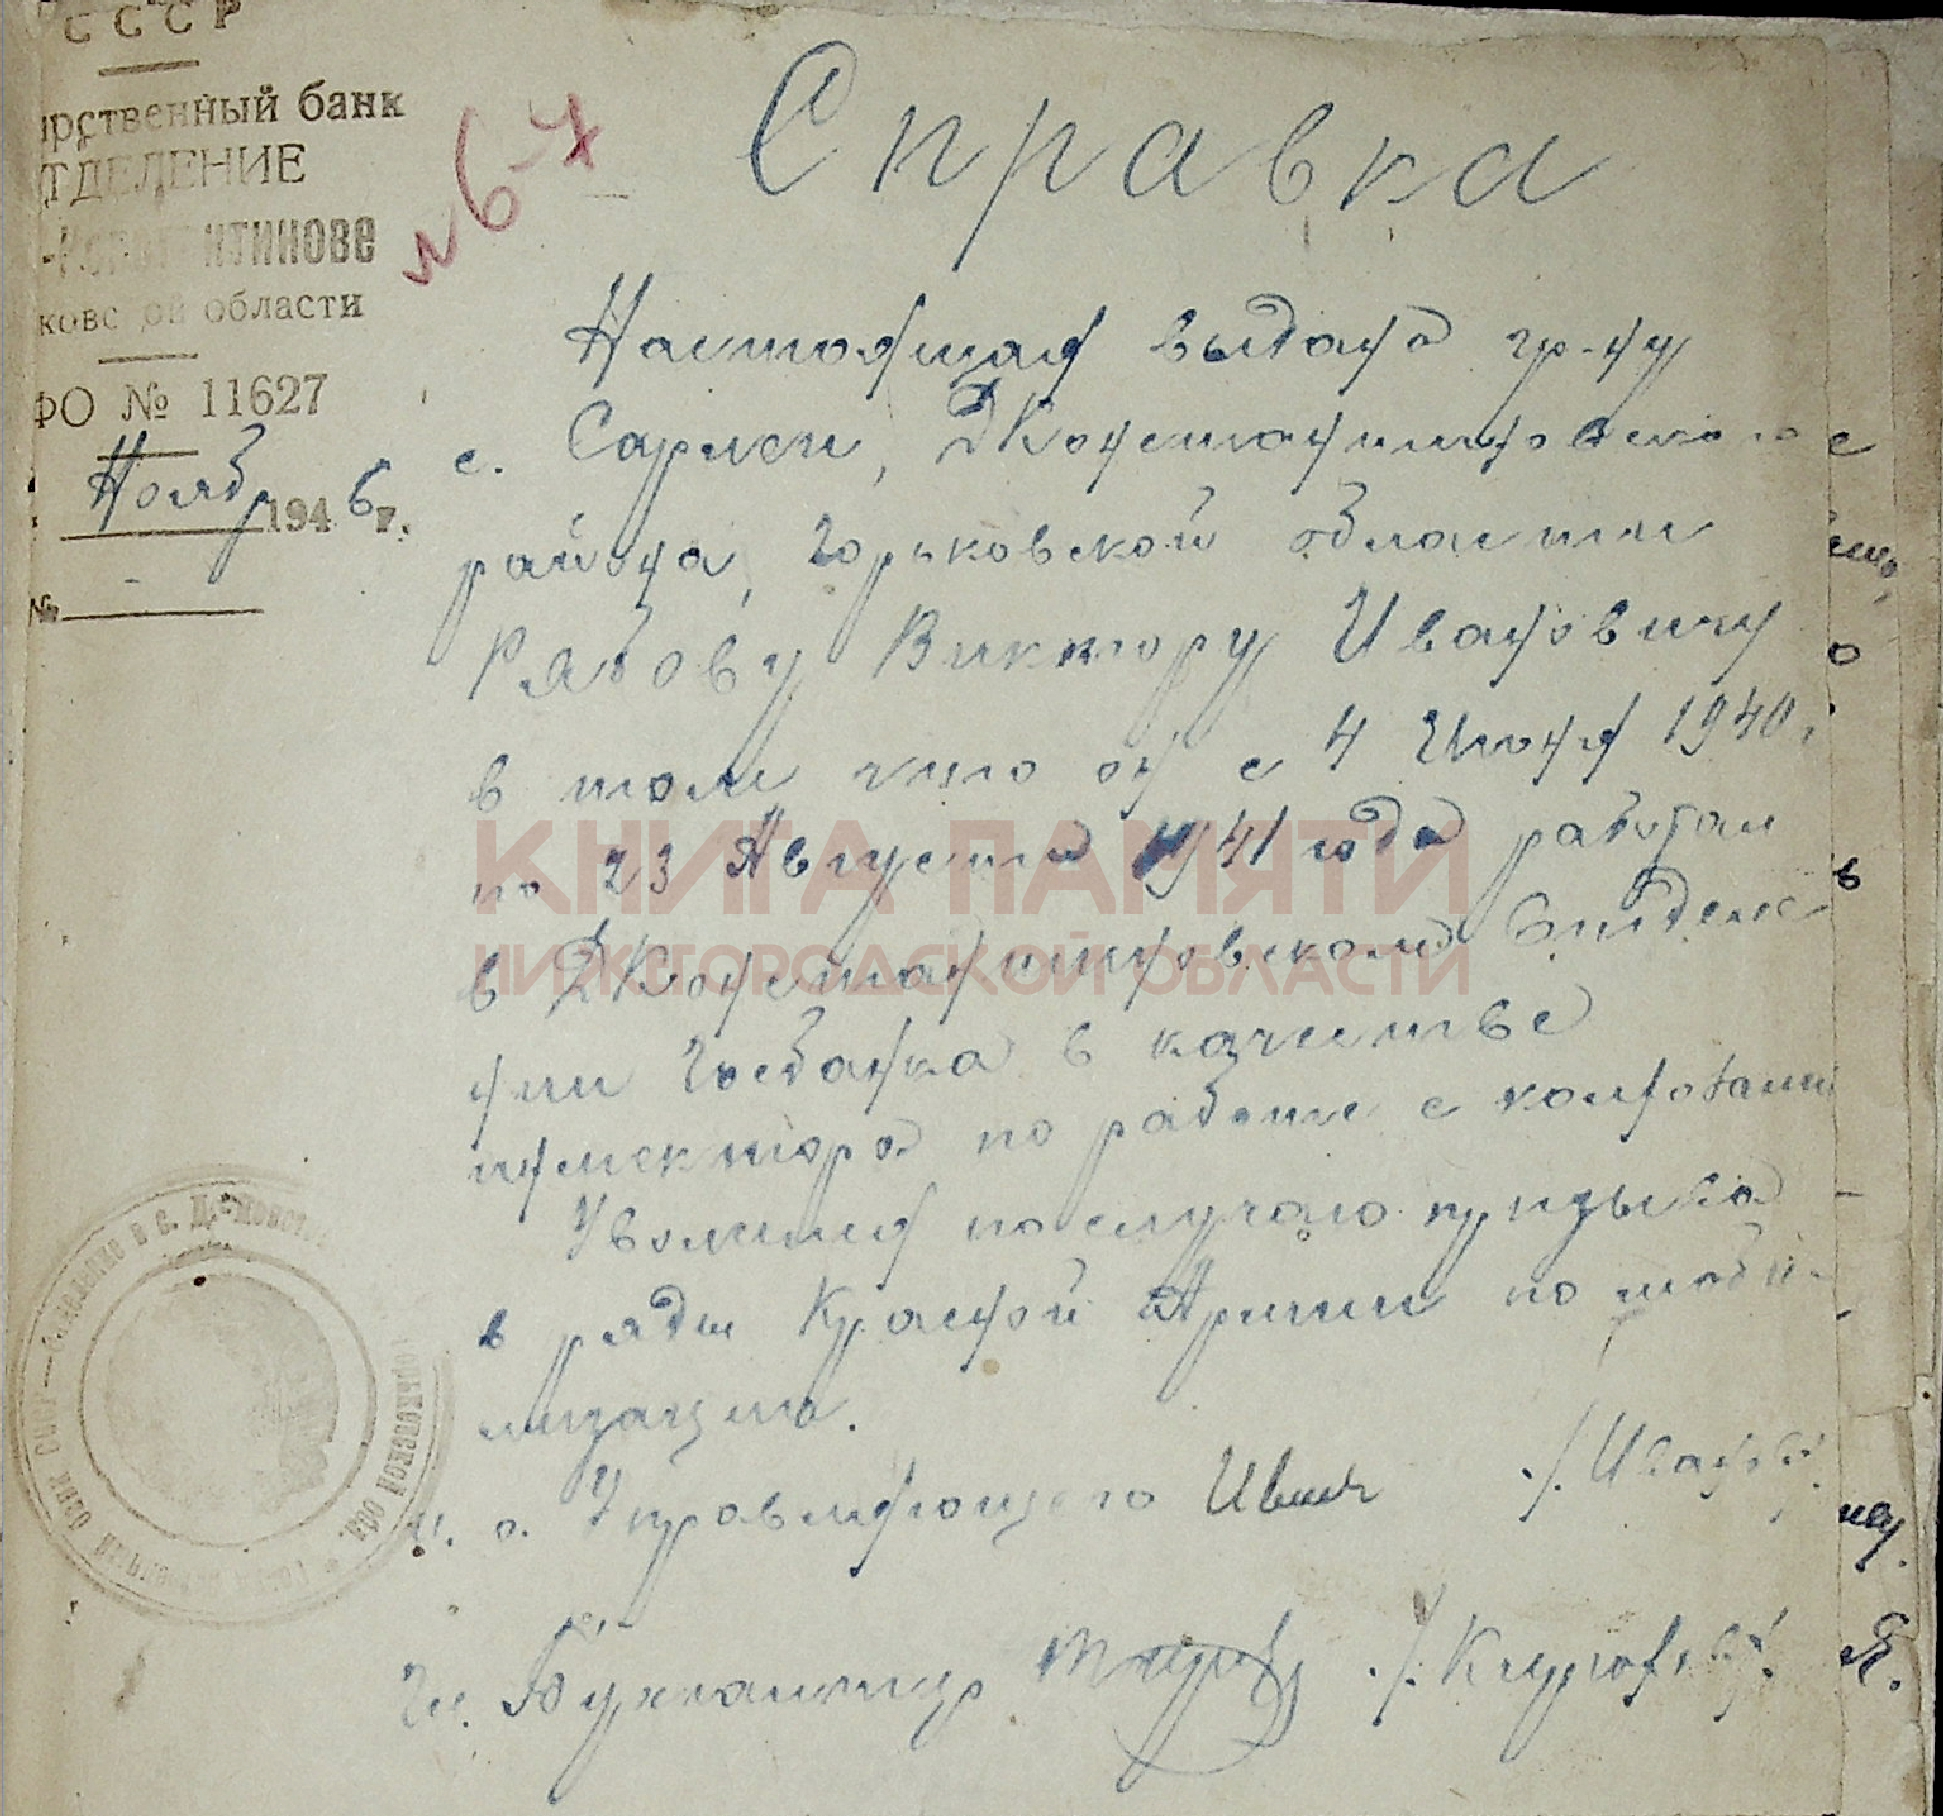 СССР
арственный банк
ТДЕЛЕНИЕ
-Константинове
ковской области
ФО № 11627
Ноябр 1946 г.
№
№ 6-7
Справка
Настоящая выдана гр-ну
с. Сарлеи, ДКонстантиновского
района, Горьковской области
Рябову Виктору Ивановичу
в том что он с 4 Июня 1940г
по 23 Августа 1941 года работал
в ДКонстантиновском Отделе
нии Госбанка в качестве
инспектора по работе с колхозами
Уволился по случаю призыва
в ряды Красной Армии по моби-
лизацию.
И. о. Управляющего /Иванов/
Гл. Бухгалтер
КНИГА ПАМЯТИ
НИЖЕГОРОДСКОЙ ОБЛАСТИ